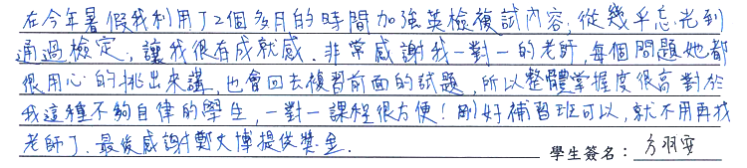 在今年暑假我利用了2個多月的時間加強英檢複試內容，從幾乎忘光到
通過檢定，讓我很有成就感．非常感謝我一對一的老師，每個問題她都
很用心的挑出來講，也會回去複習前面的試題，所以整體掌握度很高對於
我這種不夠自律的學生，一對一課程很方便！剛好補習班可以，就不用再找
老師了．最後感謝鄭文博提供獎金．
學生簽名：方羽雯